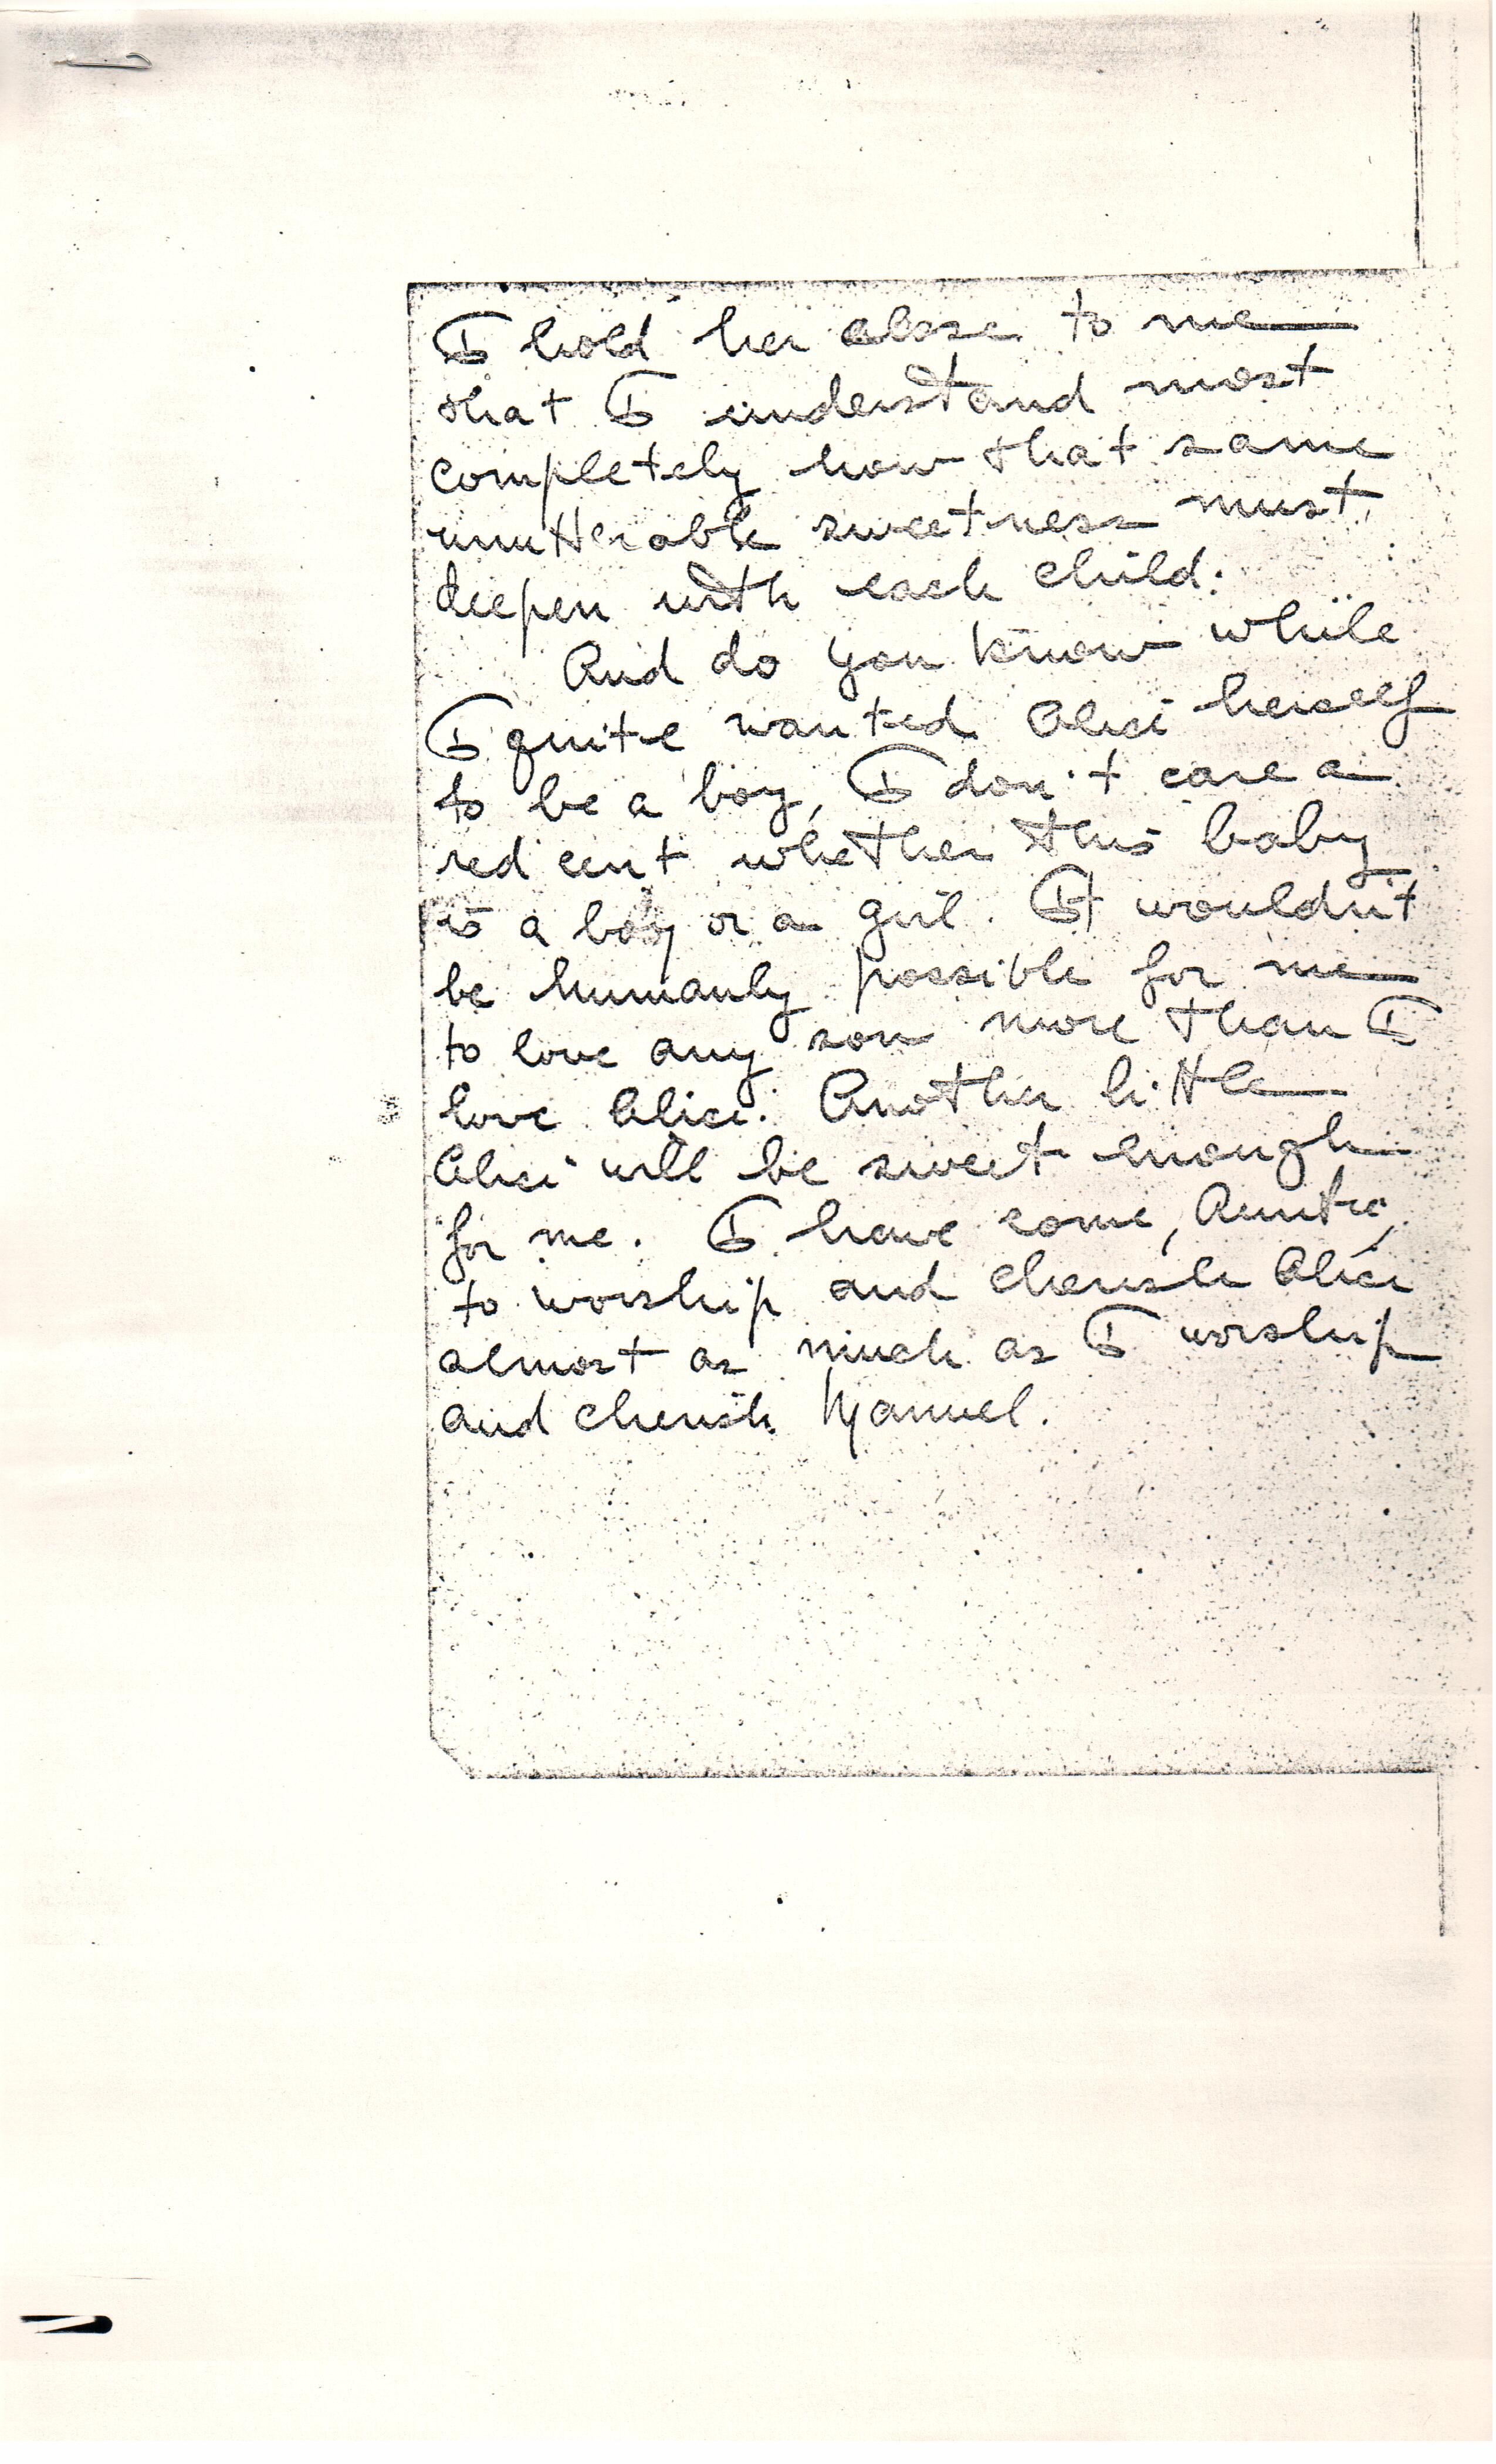 I hold her close to me
that I understand most
completely how that same
unutterable sweetness must
deepen with each child.
And do you know while
I quite wanted Alice herself
to be a boy, I don't care a
red cent whether this baby
is a boy or a girl. It wouldn't
be humanly possible for me
to love any son more than I
love Alice. Another little
Alice will be sweet enough
for me. I have come, Auntie,
to worship and cherish Alice
almost as much as I worship
and cherish Manuel.